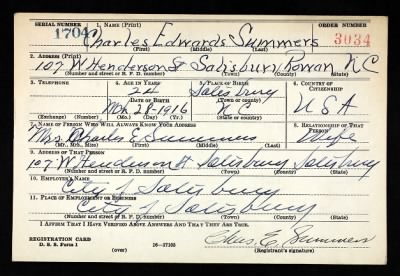 SERIAL NUMBER 1. NAME (Print) ORDER NUMBER
1704 Charles Edwards Summers 3034
(First) (Middle) (Last)
2. ADDRESS (Print)
107 W Henderson St Salisbury Rowan N C
(Number and street or R. F. D. number) (Town) (County) (State)
3. TELEPHONE 4. AGE IN YEARS 5. PLACE OF BIRTH 6. COUNTRY OF CITIZENSHIP
24 Salisbury
DATE OF BIRTH (Town or county)
1916 N C U S A
(Exchange) (No.) (Mo.) (Day) (Yr.) (State or country)
7. NAME OF PERSON WHO WILL ALWAYS KNOW YOUR ADDRESS 8. RELATIONSHIP OF THAT PERSON
Mrs Charles E Summers Wife
(Mr., Mrs., Miss) (First) (Middle) (Last)
9. ADDRESS OF THAT PERSON
107 W Henderson St Salisbury Salisbury
(Number and street or R. F. D. number) (Town) (County) (State)
10. EMPLOYER'S NAME
City of Salisbury
11. PLACE OF EMPLOYMENT OR BUSINESS
City of Salisbury
(Number and street or R. F. D. number) (Town) (County) (State)
I AFFIRM THAT I HAVE VERIFIED ABOVE ANSWERS AND THAT THEY ARE TRUE.
REGISTRATION CARD Chas. E. Summers
D. S. S. Form 1 (over) 16-17105 (Registrant's signature)